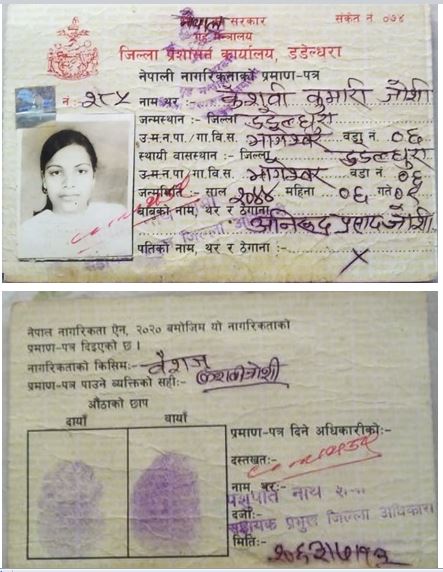 नेपाल सरकार
संकेत नं ०७४
गृह मन्त्रालय
जिल्ला प्रशासन कार्यालय, डडेल्धुरा
नेपाली नागरिकताको प्रमाण-पत्र
नं: २८५
नाम थर :- केशुवी कुमारी जोशी
जन्मस्थान :- जिल्ला डडेल्धुरा
उ.म.न.पा./गा.वि.स. भागेश्वर वडा नं. ०६
स्थायी वासस्थान :- जिल्ला डडेल्धुरा
उ.म.न.पा./गा.वि.स. भागेश्वर वडा नं. ०६
जन्ममिति :- साल २०४४ महिना ०६ गते ०१
बाबुको नाम, थर र ठेगाना :- अनिरुद्ध प्रसाद जोशी
पतिको नाम, थर र ठेगाना :- X
नेपाल नागरिकता ऐन, २०२० बमोजिम यो नागरिकताको
प्रमाण-पत्र दिइएको छ ।
नागरिकताको किसिम:- वंशज
प्रमाण-पत्र पाउने व्यक्तिको सही:- जोशी
औंठाको छाप
दायाँ बायाँ
प्रमाण-पत्र दिने अधिकारीको:-
दस्तखत:-
नाम, थर:-
पशुपति नाथ
दर्जा:-
सहायक प्रमुख जिल्ला अधिकारी
मिति:-